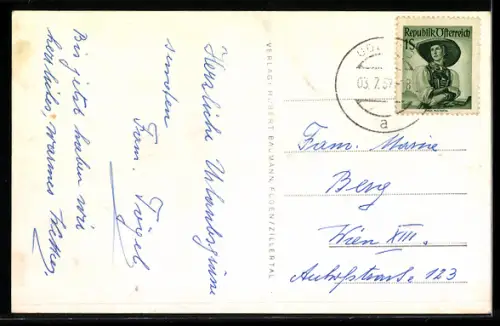 Herzliche Urlaubsgrüsse
senden
Fam.
Bis jetzt haben wir
herrliches, warmes Wetter.
VERLAG: HUBERT BAUMANN, FÜGEN/ZILLERTAL
Republik Österreich
1S
03.7.57
a
Fam. Marine
Berg
Wien XIII.
Auhofstrasse 123